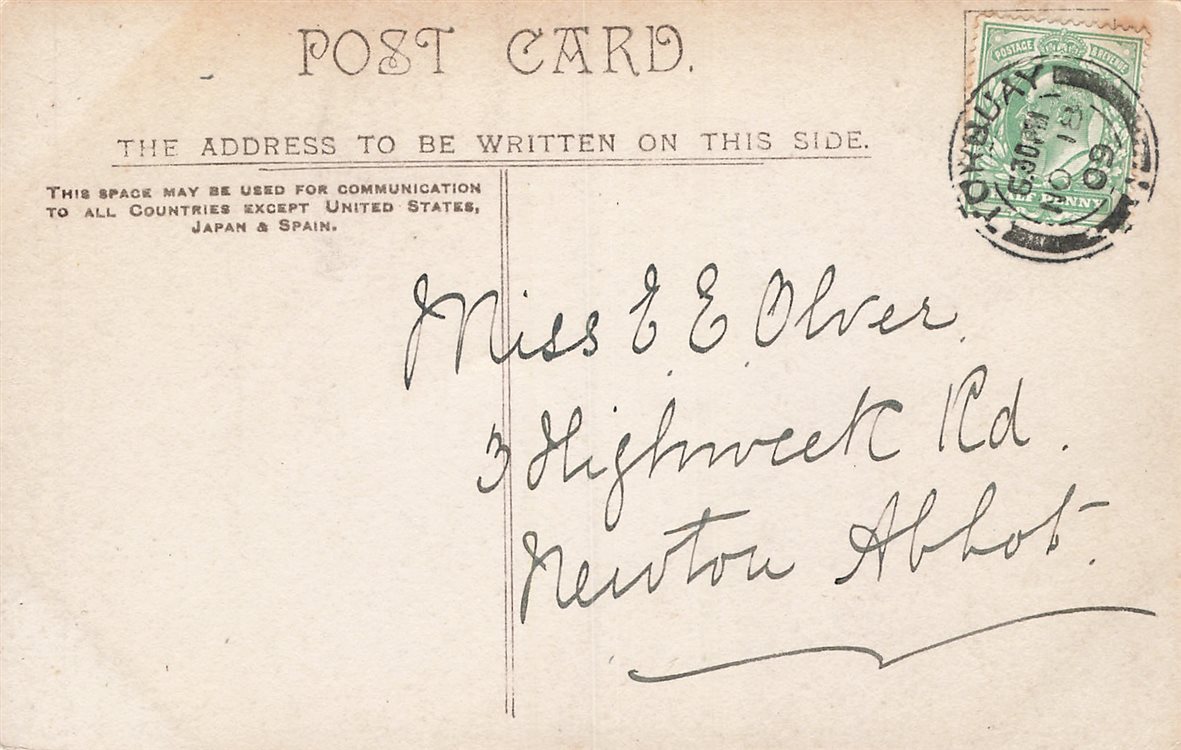 POST CARD.
THE ADDRESS TO BE WRITTEN ON THIS SIDE.
THIS SPACE MAY BE USED FOR COMMUNICATION
TO ALL COUNTRIES EXCEPT UNITED STATES,
JAPAN & SPAIN.
POSTAGE & REVENUE
HALF PENNY
TORQUAY
NO 18
09
Miss E E Olver
3 Highweek Rd.
Newton Abbot.